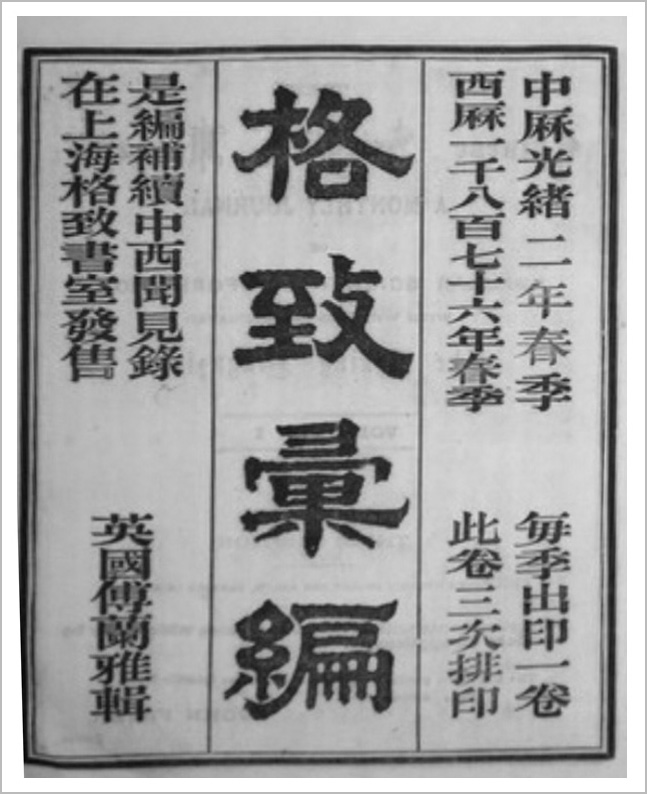 中厤光緒二年春季
每季出印一卷
西厤一千八百七十六年春季
此卷三次排印
格致彙編
是編補續中西聞見錄
在上海格致書室發售
英國傅蘭雅輯